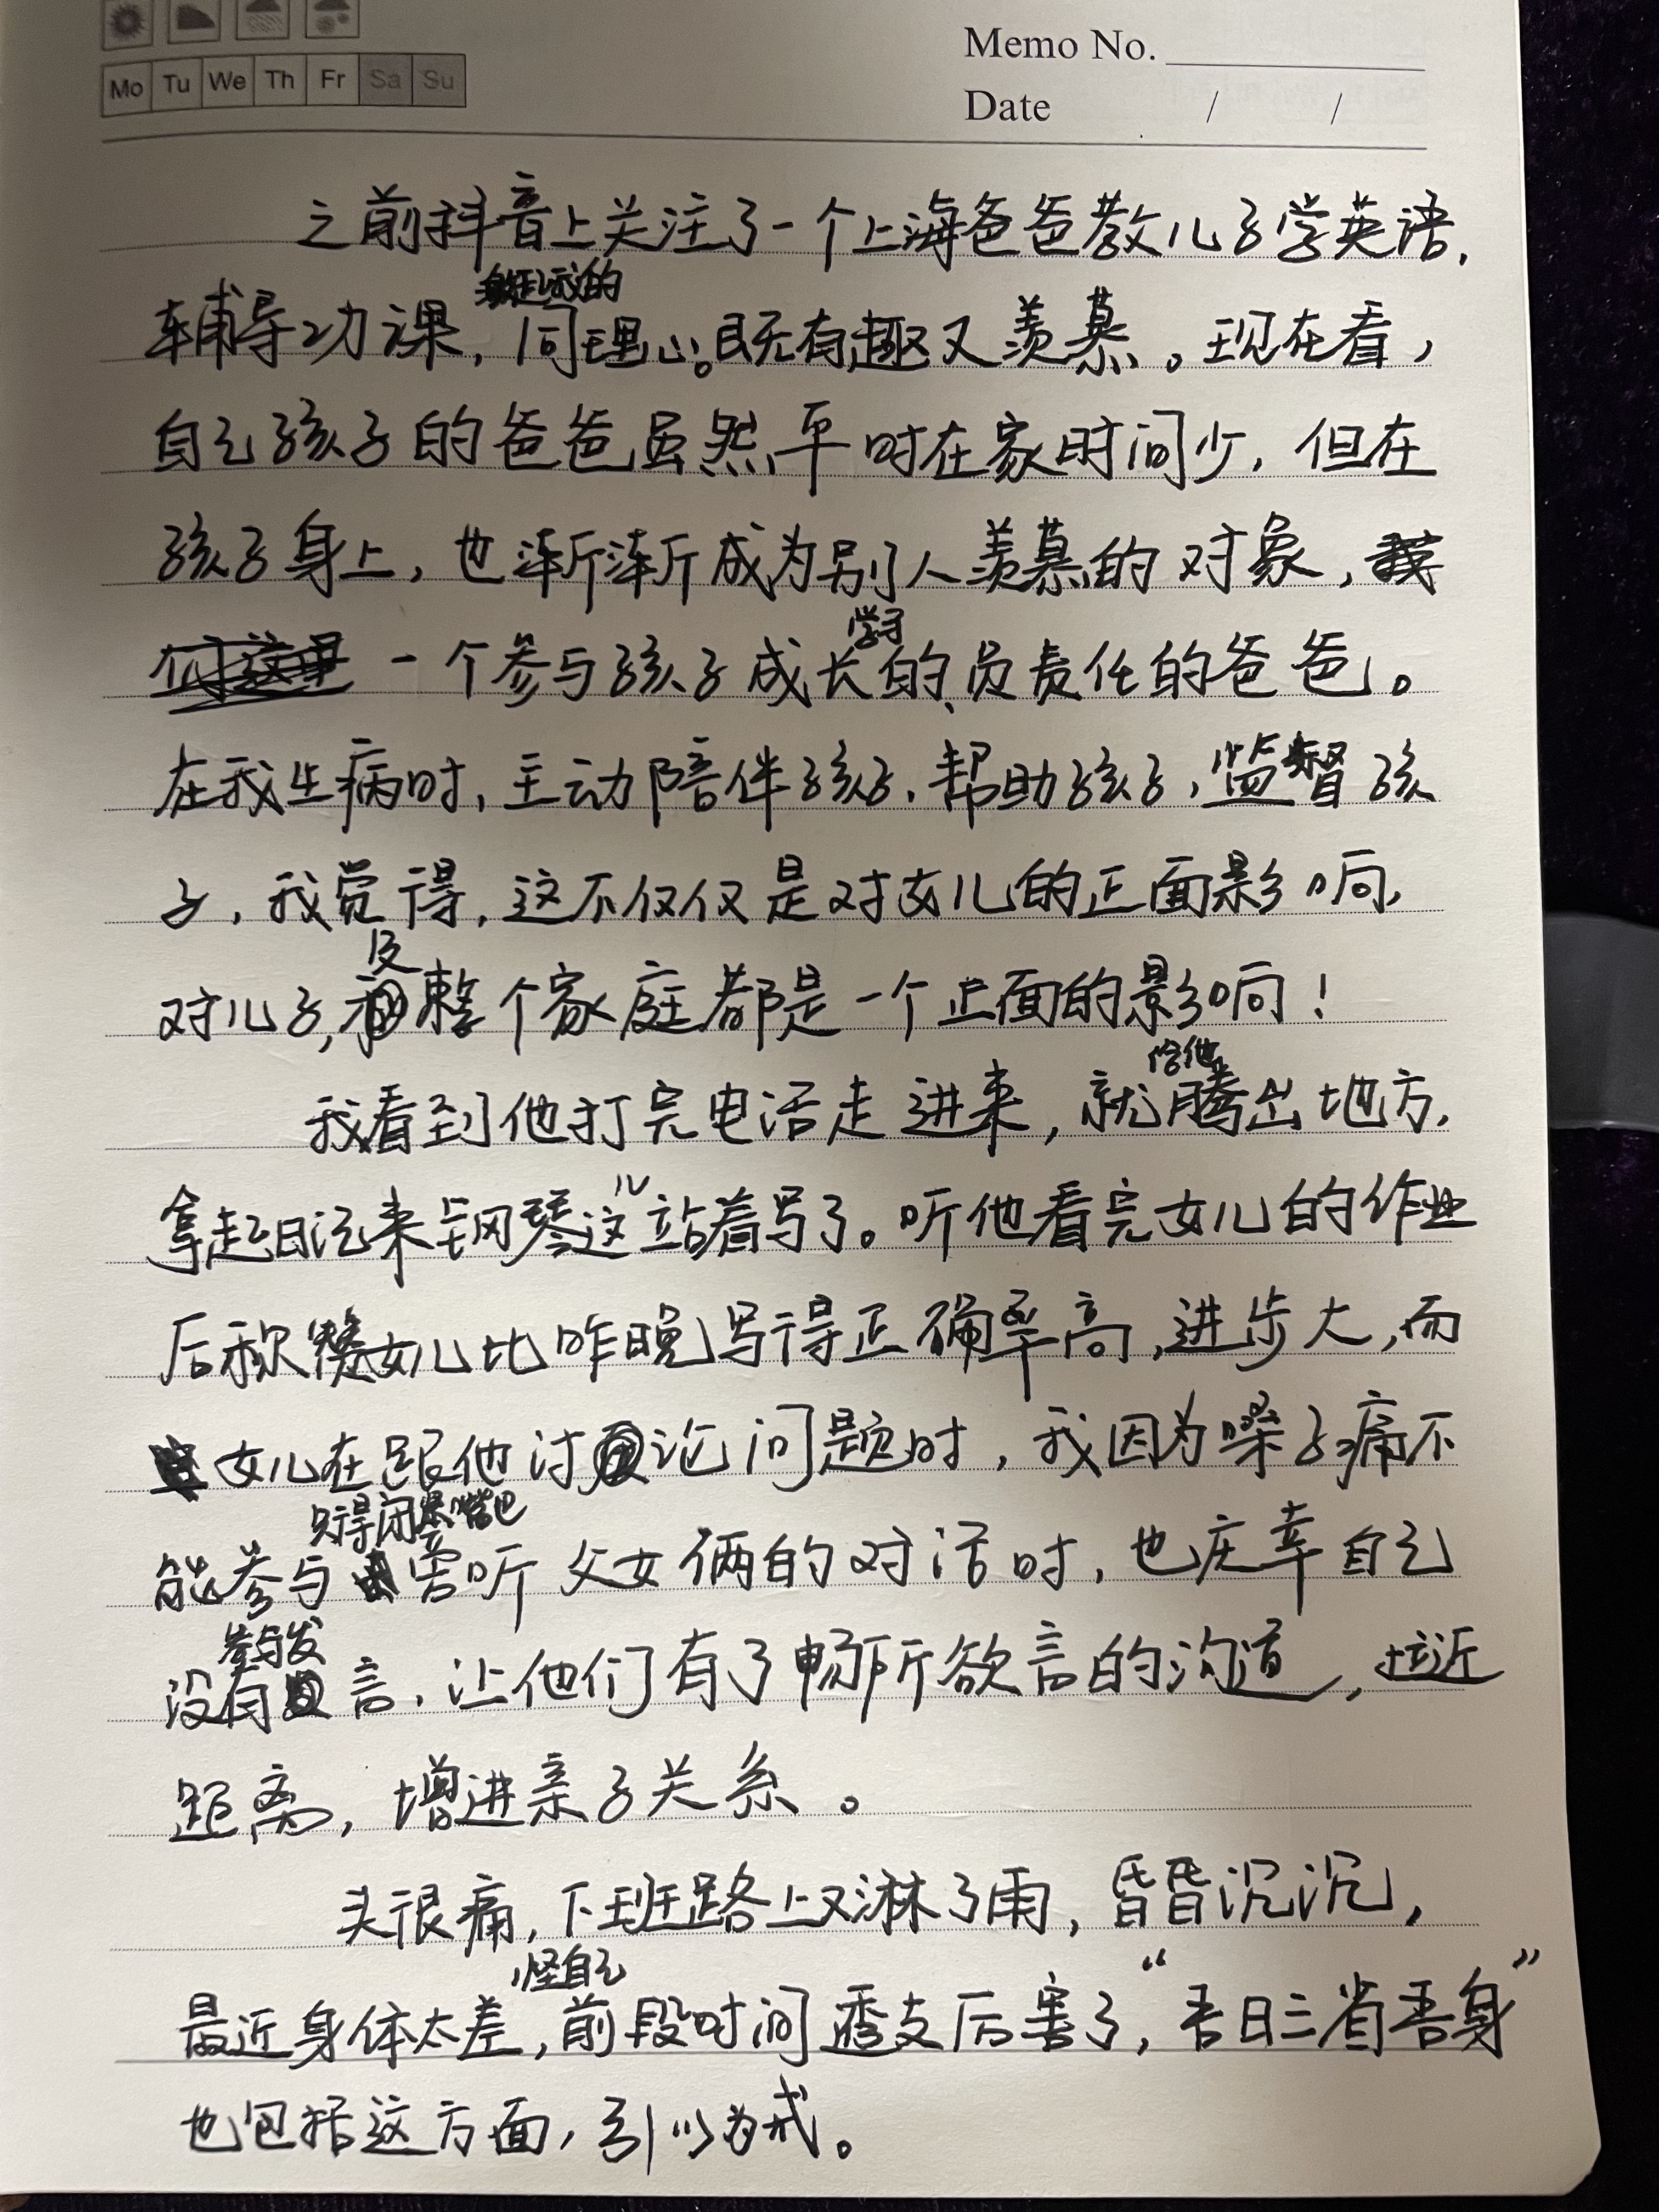 Mo Tu We Th Fr Sa Su
Memo No.
Date / /
之前抖音上关注了一个上海爸爸教儿子学英语,
起我的
辅导功课,同理心。既有趣又羡慕。现在看,
自己孩子的爸爸虽然平时在家时间少,但在
孩子身上,也渐渐成为别人羡慕的对象,
学习
一个参与孩子成长的、负责任的爸爸。
在我生病时,主动陪伴孩子、帮助孩子,监督孩
子,我觉得,这不仅仅是对女儿的正面影响,
及
对儿子,整个家庭都是一个正面的影响!
给他
我看到他打完电话走进来,就腾出地方,
儿
拿起日记来钢琴这站着写了。听他看完女儿的作业
后称赞女儿比昨晚写得正确率高,进步大,而
女儿在跟他讨论问题时,我因为嗓子痛不
只得闭紧嘴巴
能参与旁听父女俩的对话时,也庆幸自己
参与发
没有言,让他们有了畅所欲言的沟道,拉近
距离,增进亲子关系。
头很痛,下班路上又淋了雨,昏昏沉沉,
怪自己
最近身体太差,前段时间透支厉害了,“吾日三省吾身”
也包括这方面,引以为戒。